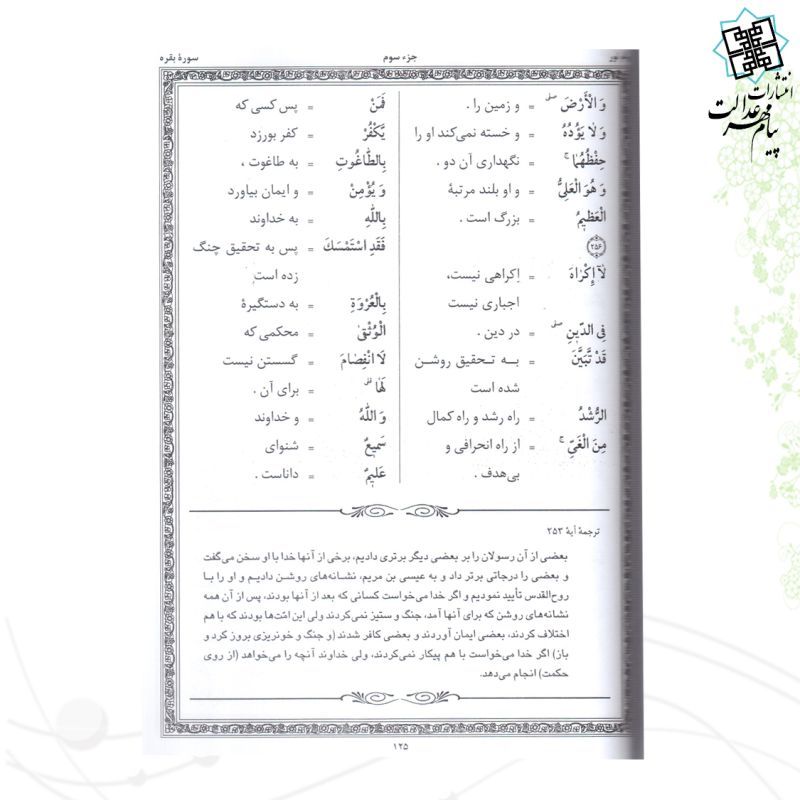 انتشارات
پیام مهر عدالت
سورهٔ بقره
جزء سوم
وَ الْأَرْضَ = و زمین را .
وَ لا يَؤُدُهُ = و خسته نمی‌کند او را
حِفْظُهُما = نگهداری آن دو .
وَ هُوَ الْعَلِيُّ = و او بلند مرتبهٔ
الْعَظيمُ = بزرگ است .
۲۵۶
لا إِكْراهَ = اِکراهی نیست،
اجباری نیست
فِي الدّينِ = در دین .
قَدْ تَبَيَّنَ = به تحقیق روشن
شده است
الرُّشْدُ = راه رشد و راه کمال
مِنَ الْغَيِّ = از راه انحرافی و
بی‌هدف .
فَمَنْ = پس کسی که
يَكْفُرْ = کفر بورزد
بِالطّاغُوتِ = به طاغوت ،
وَ يُؤْمِنْ = و ایمان بیاورد
بِاللهِ = به خداوند
فَقَدِ اسْتَمْسَكَ = پس به تحقیق چنگ
زده است
بِالْعُرْوَةِ = به دستگیرهٔ
الْوُثْقىٰ = محکمی که
لَا انْفِصامَ = گسستن نیست
لَها = برای آن .
وَ اللهُ = و خداوند
سَميعٌ = شنوای
عَليمٌ = داناست .
ترجمهٔ آیهٔ ۲۵۳
بعضی از آن رسولان را بر بعضی دیگر برتری دادیم، برخی از آنها خدا با او سخن می‌گفت
و بعضی را درجاتی برتر داد و به عیسی بن مریم، نشانه‌های روشن دادیم و او را با
روح‌القدس تأیید نمودیم و اگر خدا می‌خواست کسانی که بعد از آنها بودند، پس از آن همه
نشانه‌های روشن که برای آنها آمد، جنگ و ستیز نمی‌کردند ولی این امّت‌ها بودند که با هم
اختلاف کردند، بعضی ایمان آوردند و بعضی کافر شدند (و جنگ و خونریزی بروز کرد و
باز) اگر خدا می‌خواست با هم پیکار نمی‌کردند، ولی خداوند آنچه را می‌خواهد (از روی
حکمت) انجام می‌دهد.
۱۲۵